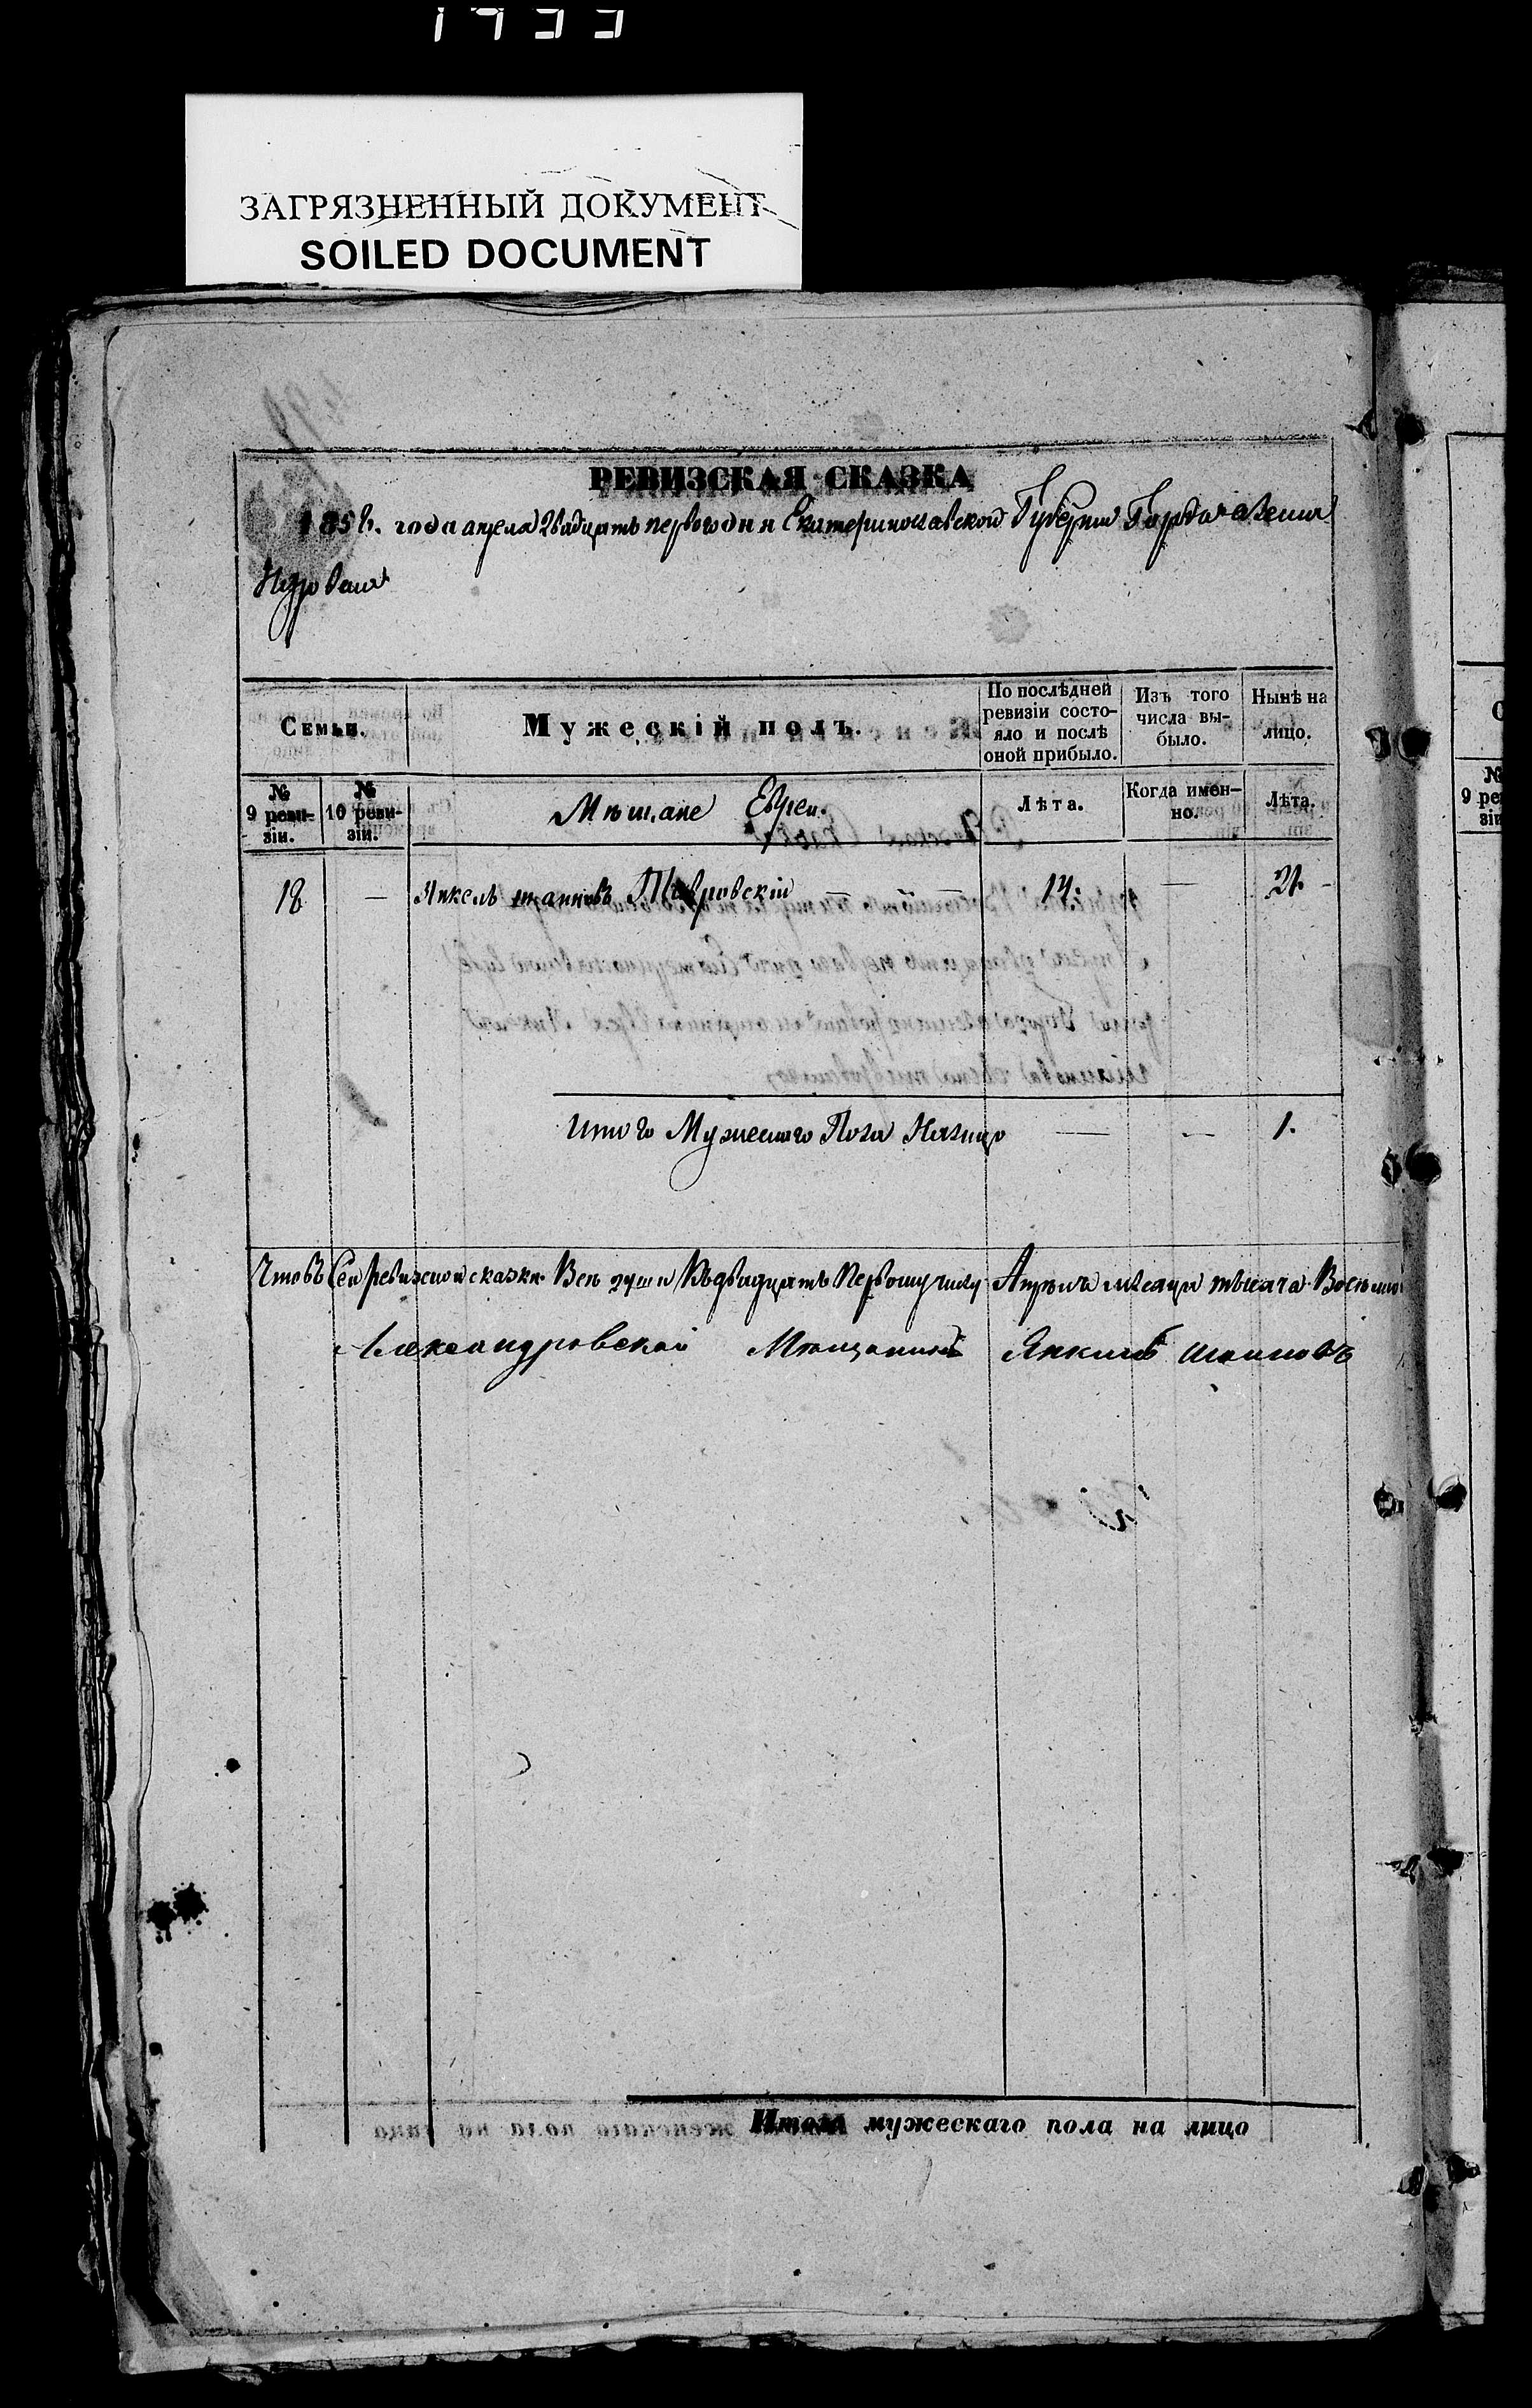 1933
ЗАГРЯЗНЕННЫЙ ДОКУМЕНТ
SOILED DOCUMENT
РЕВИЗСКАЯ СКАЗКА
1858. года апреля двадцать первого дня Екатеринославской Губернии Города
Семьи.
Мужескій полъ.
По послѣдней ревизіи состояло и послѣ оной прибыло.
Изъ того числа выбыло.
Нынѣ на лицо.
№ 9 ревизіи.
№ 10 ревизіи.
Мѣщане Евреи.
Лѣта.
Когда именно.
Лѣта.
18 — Янкель Тивровскій 14. — 21. -
Итого Мужеского Пола Налицо — — 1.
Что въ сей ревизской сказки Все души Къ двадцать Первому числу Апрѣля мѣсяца тысяча Восемьсо
Александровскай Мѣщанинъ Янкель
Итого мужескаго пола на лицо